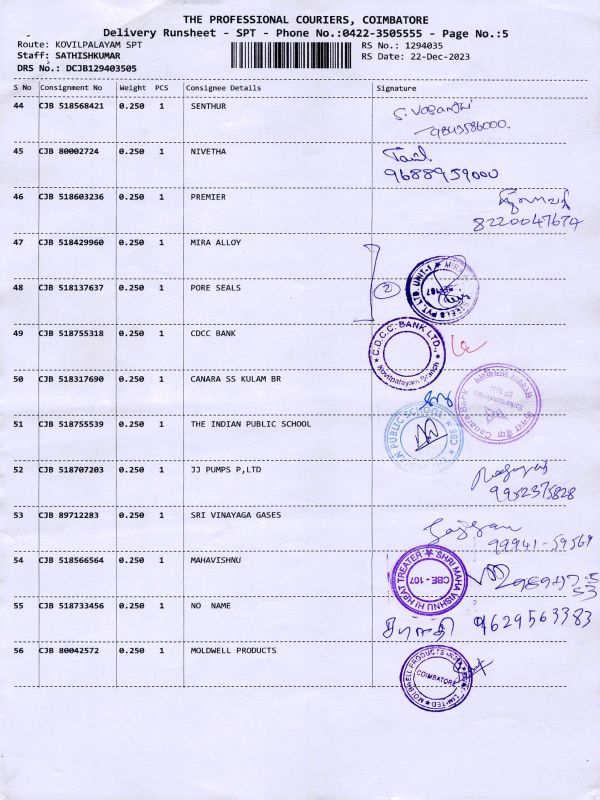 THE PROFESSIONAL COURIERS, COIMBATORE
Delivery Runsheet - SPT - Phone No.:0422-3505555 - Page No.:5
Route: KOVILPALAYAM SPT
RS No.: 1294035
Staff: SATHISHKUMAR
RS Date: 22-Dec-2023
DRS No.: DCJB129403505
S No Consignment No Weight PCS Consignee Details Signature
44 CJB 518568421 0.250 1 SENTHUR
9843586000.
45 CJB 80002724 0.250 1 NIVETHA
9688959000
46 CJB 518603236 0.250 1 PREMIER
8220047674
47 CJB 518429960 0.250 1 MIRA ALLOY
48 CJB 518137637 0.250 1 PORE SEALS
2
49 CJB 518755318 0.250 1 CDCC BANK
C.D.C.C. BANK LTD., Kovilpalayam Branch
50 CJB 518317690 0.250 1 CANARA SS KULAM BR
51 CJB 518755539 0.250 1 THE INDIAN PUBLIC SCHOOL
52 CJB 518707203 0.250 1 JJ PUMPS P,LTD
9952375828
53 CJB 89712283 0.250 1 SRI VINAYAGA GASES
99941-59569
54 CJB 518566564 0.250 1 MAHAVISHNU
SHRI MAHA VISHNU HI HEAT TREATER
CBE - 107
55 CJB 518733456 0.250 1 NO NAME
9629563383
56 CJB 80042572 0.250 1 MOLDWELL PRODUCTS
COIMBATORE